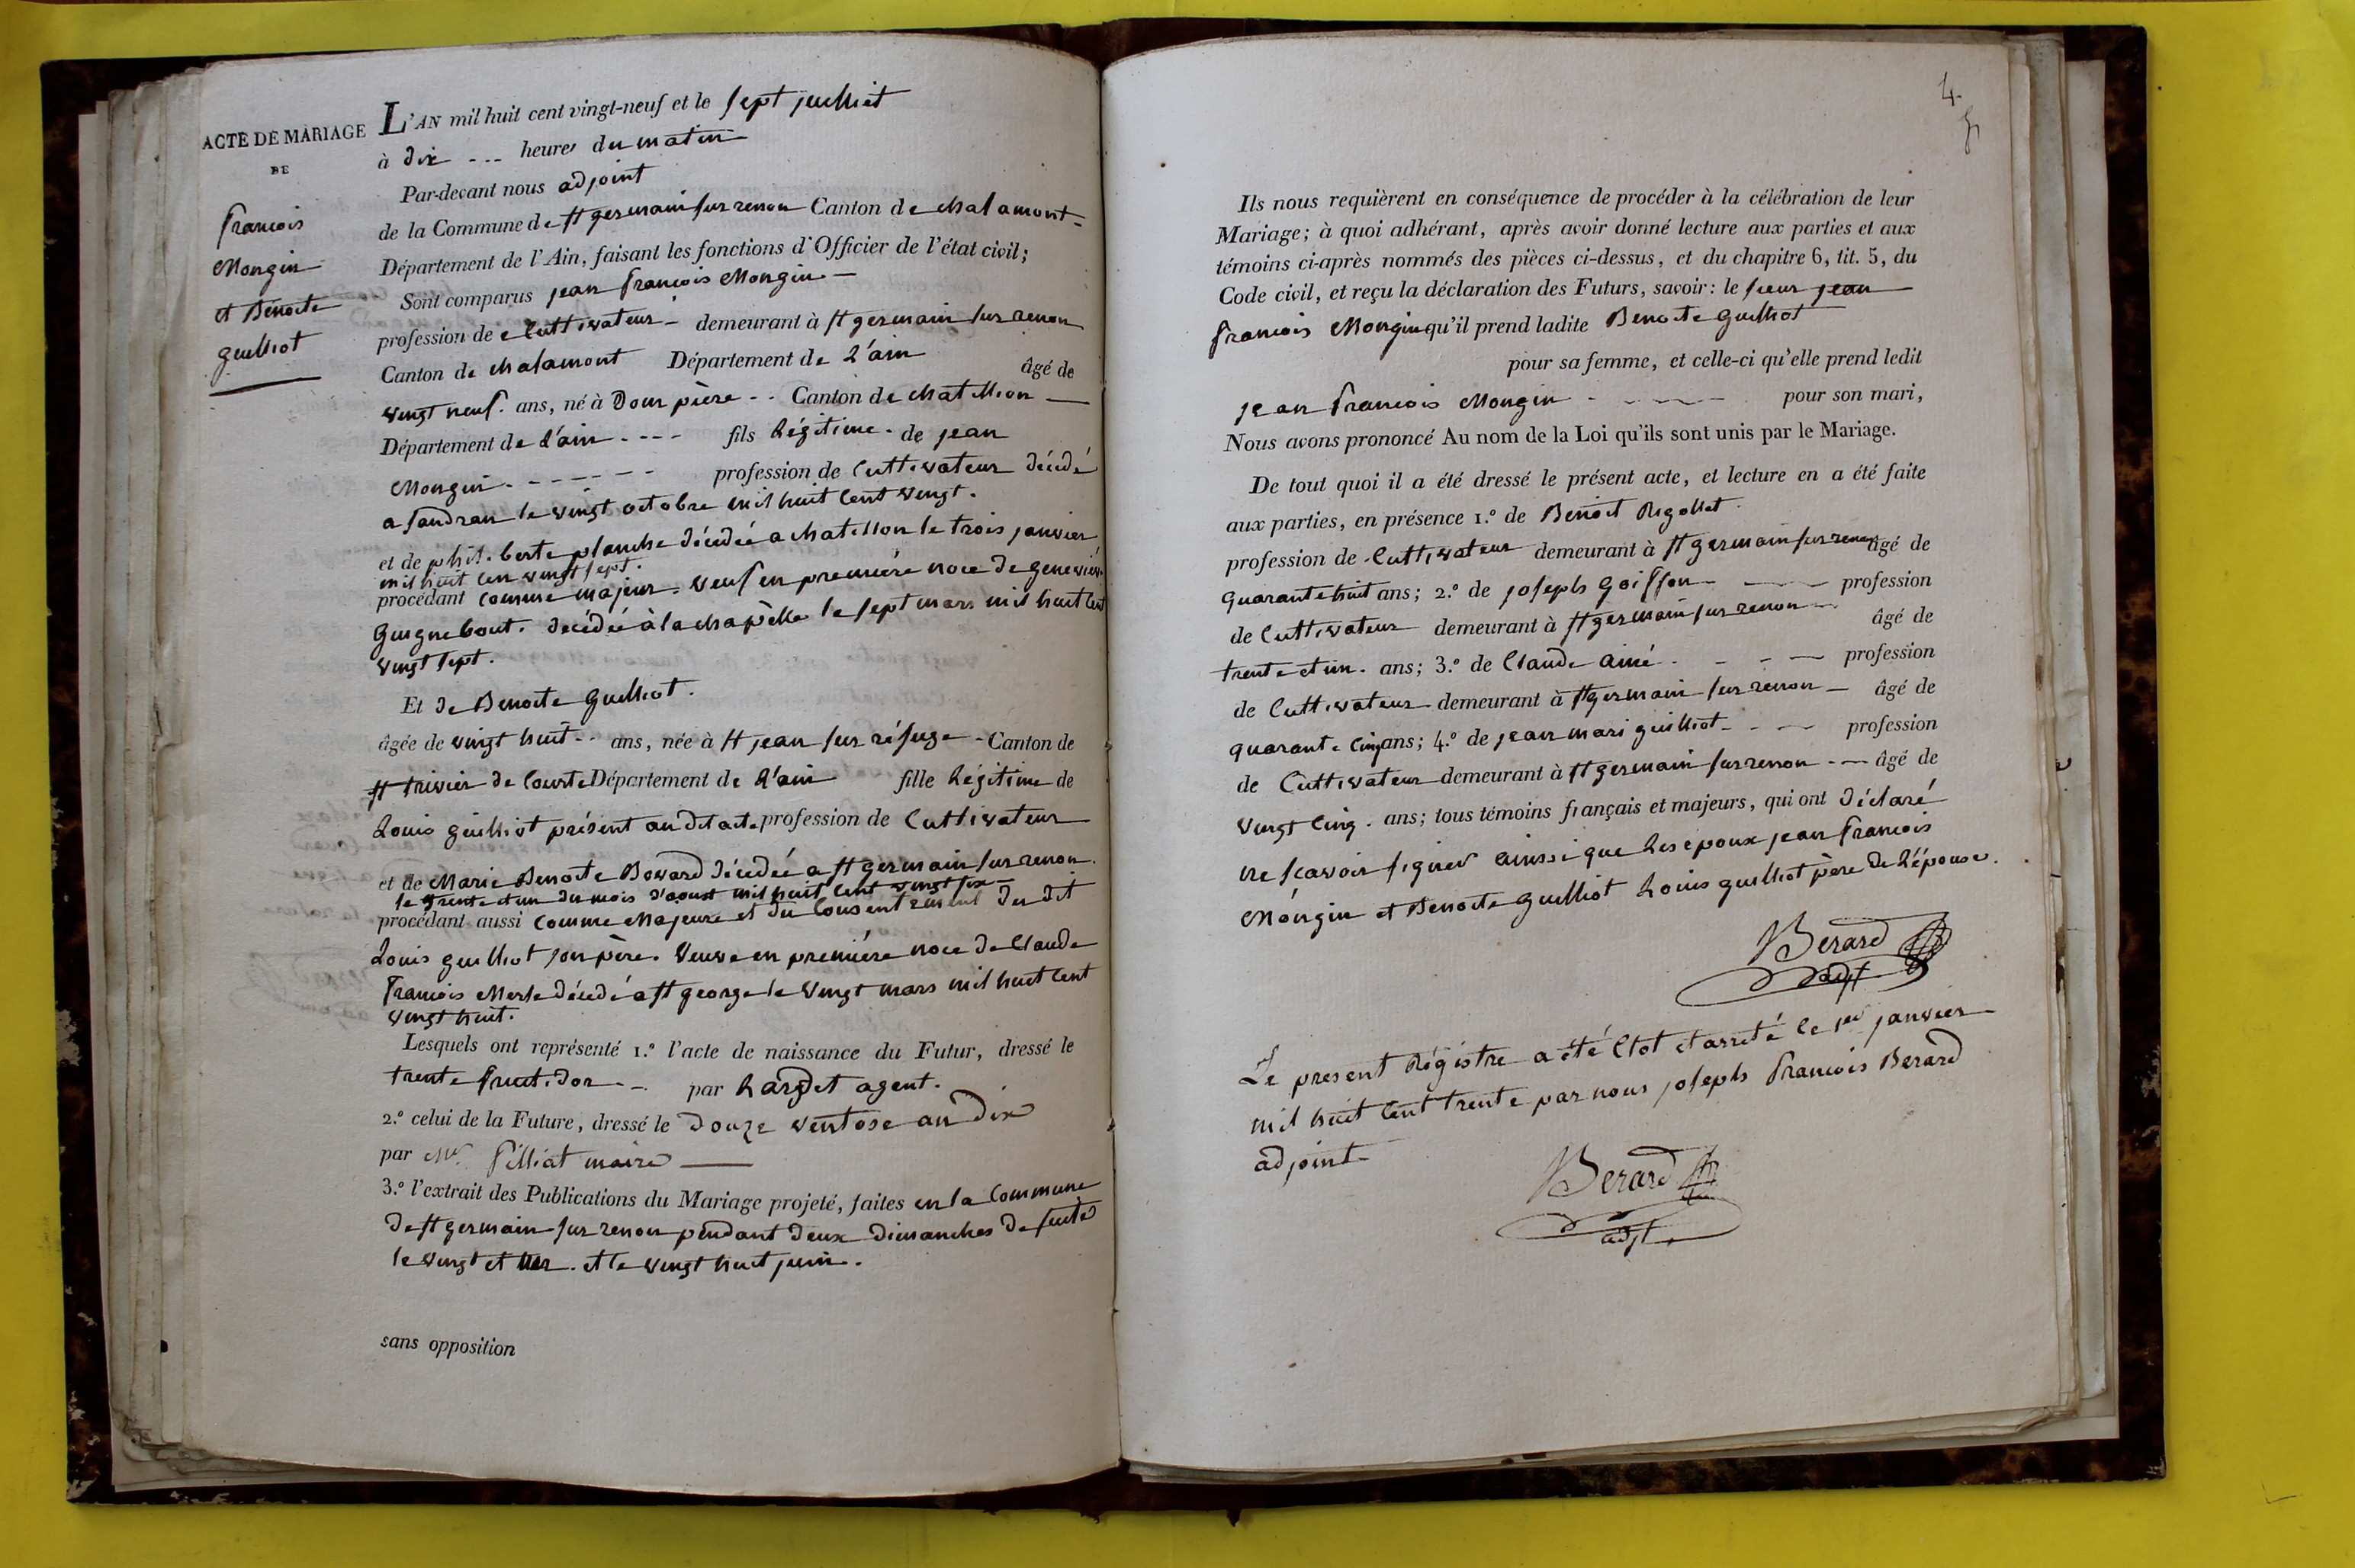 ACTE DE MARIAGE
DE
francois
Mongin
et Benoite
guilliot
L'AN mil huit cent vingt-neuf et le sept juilliet
à dix --- heures du matin
Par-devant nous adjoint
de la Commune de st germain sur renon Canton de chalamont-
Département de l'Ain, faisant les fonctions d'Officier de l'état civil;
Sont comparus jean francois Mongin -
profession de cultivateur - demeurant à st germain sur renon
Canton de chalamont Département de L'ain âgé de
vingt neuf. ans, né à Dom pière -- Canton de chatillion -
Département de L'ain --- fils Légitime. de jean
Mongin ------ profession de Cultivateur décédé
a sandran le vingt octobre mil huit cent vingt.
et de phil. berte planche décédée a chatillon le trois janvier
mil huit cen vingt sept.
procédant comme majeur. veuf en première noce de genevieve
Guignebout. décédée à la chapelle le sept mars mil huit cent
vingt sept.
Et de Benoite guilliot.
âgée de vingt huit -- ans, née à st jean sur réfuge - Canton de
st trivier de Courte Département de L'ain fille Légitime de
Louis guilliot présent au dit acte profession de Cultivateur
et de Marie Benoite Bovard décédée a st germain sur renon.
le trente et un du mois d'aoust mil huit cent vingt six
procédant aussi comme Majeure et du Consentement du dit
Louis guilliot son père. veuve en première noce de Claude
francois Merle décédé a st george le vingt mars mil huit cent
vingt huit.
Lesquels ont représenté 1.º l'acte de naissance du Futur, dressé le
trente fruct.dor -- par Lardet agent.
2.º celui de la Future, dressé le douze ventose an dix
par Mr. filliat maire
3.º l'extrait des Publications du Mariage projeté, faites en la commune
de st germain sur renon pendant deux dimanches de suite
le vingt et un. et le vingt huit juin.
sans opposition
4
Ils nous requièrent en conséquence de procéder à la célébration de leur
Mariage; à quoi adhérant, après avoir donné lecture aux parties et aux
témoins ci-après nommés des pièces ci-dessus, et du chapitre 6, tit. 5, du
Code civil, et reçu la déclaration des Futurs, savoir: le sieur jean
francois Mongin qu'il prend ladite Benoite guilliot
pour sa femme, et celle-ci qu'elle prend ledit
jean francois Mongin - - - - pour son mari,
Nous avons prononcé Au nom de la Loi qu'ils sont unis par le Mariage.
De tout quoi il a été dressé le présent acte, et lecture en a été faite
aux parties, en présence 1.º de Benoit Rigollet.
profession de Cultivateur demeurant à st germain sur renon âgé de
quarante huit ans; 2.º de joseph goiffon - - profession
de Cultivateur demeurant à st germain sur renon - âgé de
trente et un. ans; 3.º de Claude aimé. - - - profession
de Cultivateur demeurant à st germain sur renon - âgé de
quarante cinq ans; 4.º de jean mari guilliot - - - profession
de Cultivateur demeurant à st germain sur renon -- âgé de
vingt cinq. ans; tous témoins français et majeurs, qui ont déclaré
ne scavoir signer ainssi que les epoux jean francois
Mongin et Benoite guilliot Louis guilliot père de L'épouse.
Berard
adjt
Le present Régistre a été Clot et arreté le 1er janvier
mil huit cent trente par nous joseph francois Berard
adjoint
Berard
adjt